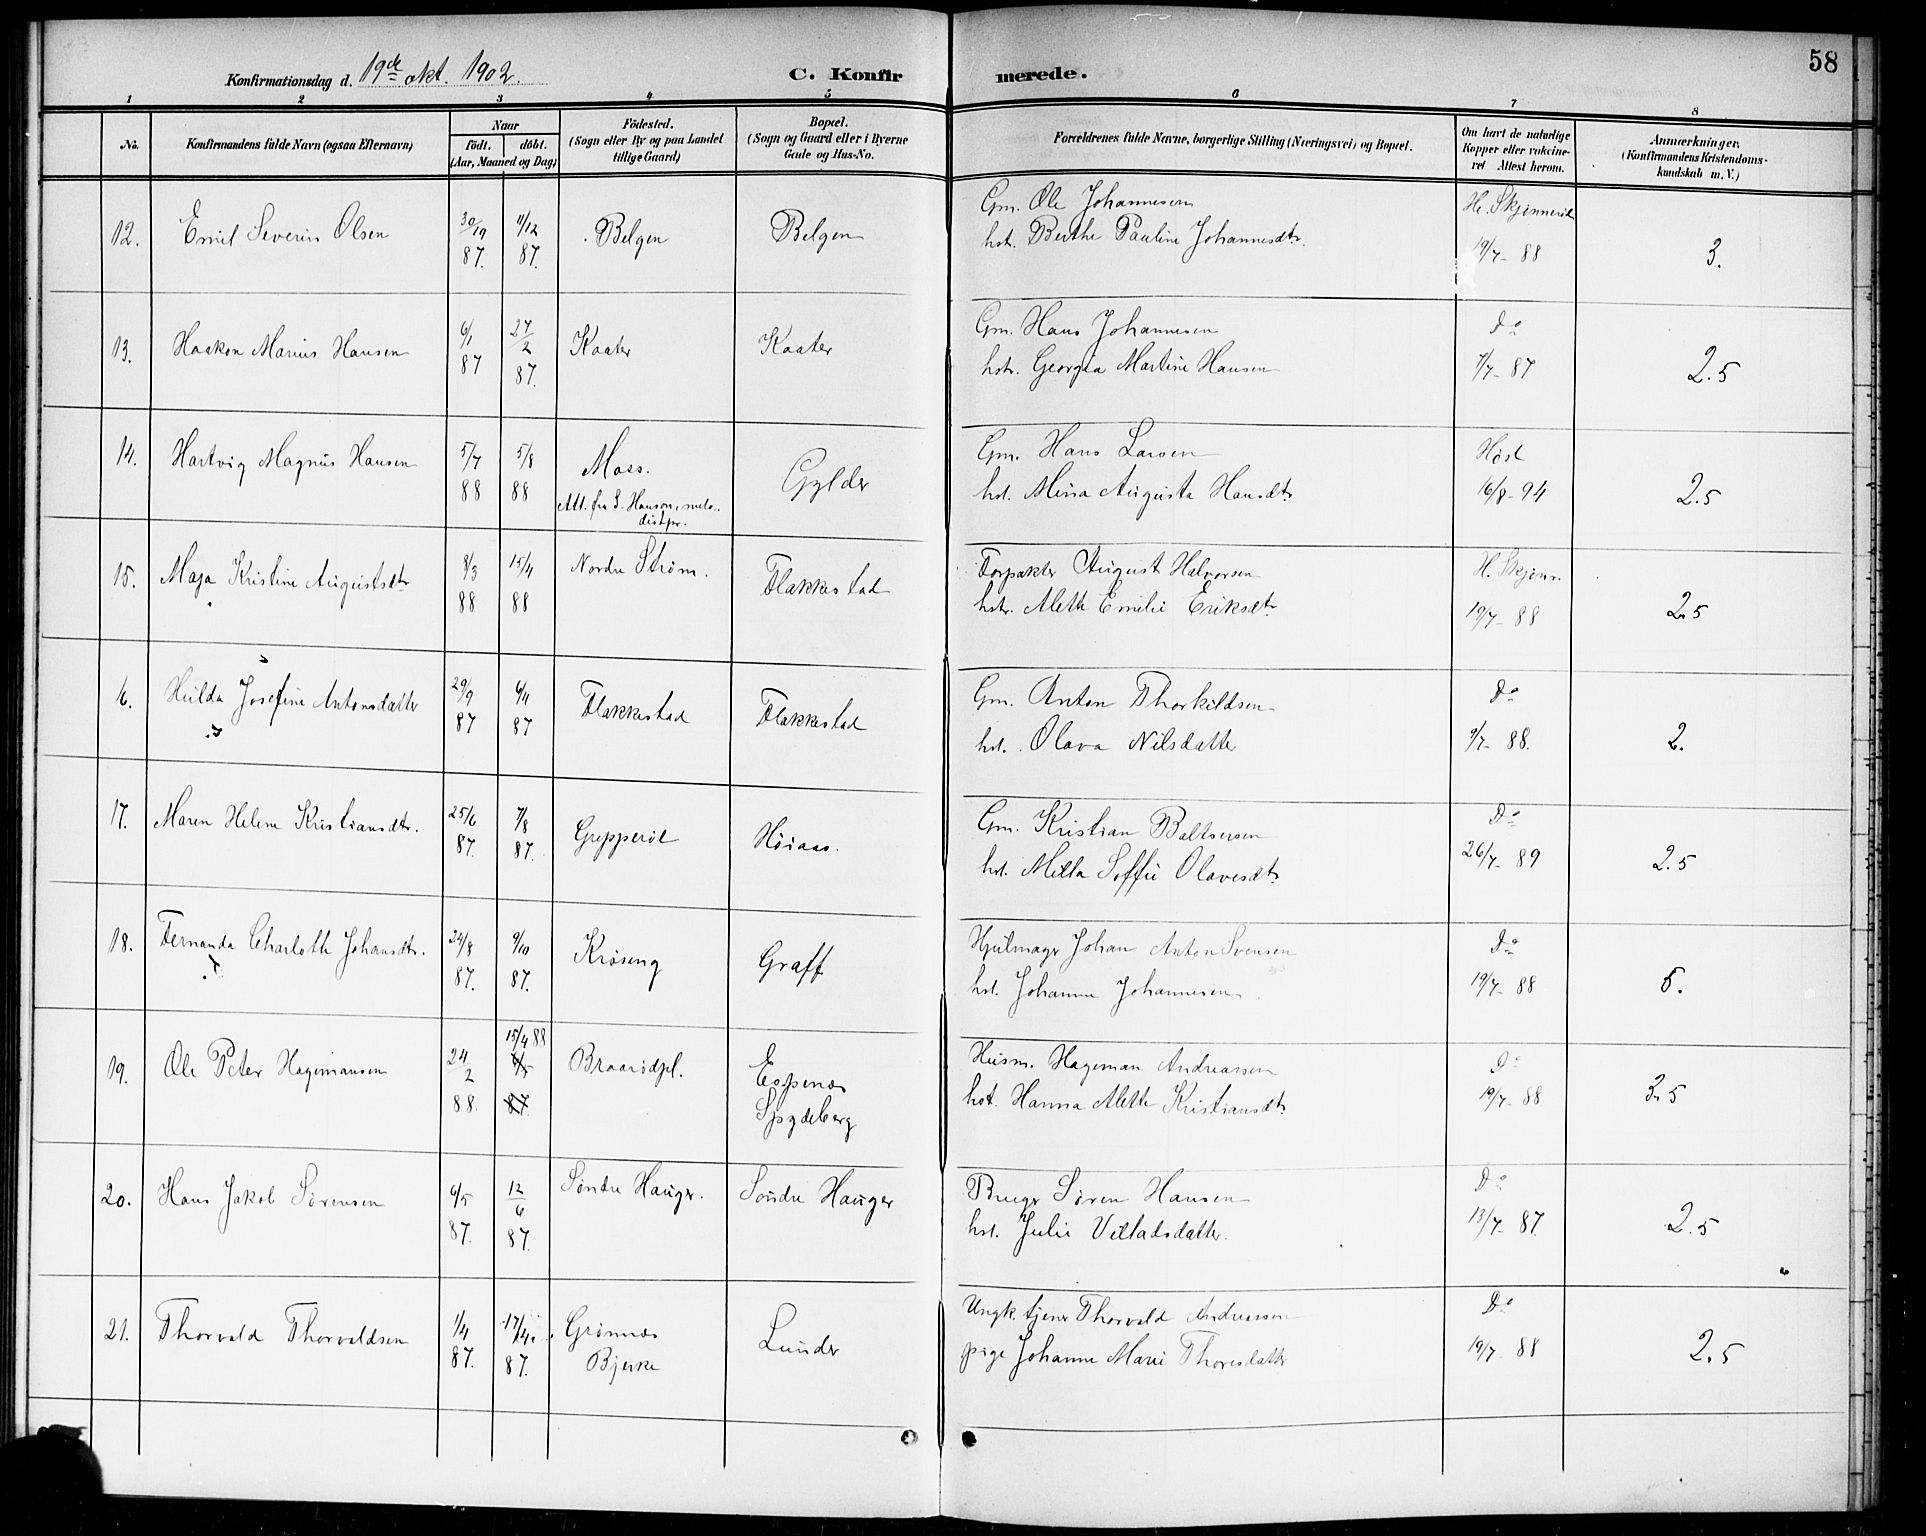 58
Konfirmationsdag d. 19de okt. 1902.
C. Konfir
merede.
1 2 3 4 5 6 7 8
No.
Konfirmandens fulde Navn (ogsaa Efternavn)
Naar
födt. döbt.
(Aar, Maaned og Dag)
Födested.
(Sogn eller By og paa Landet
tillige Gaard)
Bopæl.
(Sogn og Gaard eller i Byerne
Gade og Hus-No.
Forældrenes fulde Navne, borgerlige Stilling (Næringsvei) og Bopæl.
Om havt de naturlige
Kopper eller vakcine-
ret Attest herom.
Anmærkninger.
(Konfirmandens Kristendoms-
kundskab m. V.)
12. Emil Severin Olsen 30/10 87. 11/12 87. Belgen Belgen
Gm. Ole Johannesen He. Skjønnerød
hst. Berthe Pauline Johannesdtr. 19/7- 88 3.
13. Haakon Marius Hansen 6/1 87 27/2 87. Kaater Kaater
Gm. Hans Johannesen Do
hstr. Georgia Martine Hansen 7/7- 87 2.5
14. Hartvig Magnus Hansen 5/7 88 5/8 88 Moss. Gylder
Att. fra S. Hanson, meto.
distpr.
Gm. Hans Larsen Høst
hst. Mina Augusta Hansdtr 16/8- 94 2.5
15. Maja Kristine Augustsdtr 8/3 88 15/4 88 Nordre Strøm. Flakkestad
Forpakter August Halvorsen H. Skjønr.
hstr. Alette Emilie Eriksdtr 19/7- 88 2.5
16. Hulda Josefine Antonsdatter 29/9 87 6/11 87 Flakkestad Flakkestad
Gm. Anton Thorkildsen Do
hst. Olava Nilsdatter 9/7- 88. 2.
17. Maren Helene Kristiansdtr. 25/6 87. 7/8 87. Grepperød Höiaas.
Gm. Kristian Baltsersen Do
hst. Milla Soffie Olavesdtr 26/7- 89 2.5
18. Fernanda Charlotte Johansdtr. 24/8 87. 9/10 87. Krøseng Graff
Hjulmagr Johan Anton Svensen Do
hst. Johanne Johannesen 19/7- 88 5.
19. Ole Peter Hagemansen 24/2 88. 15/4 88 87. Braarødpl. Espenæs
Spydeberg
Husm. Hageman Andreassen Do
hst. Hanna Alette Kristiansdtr 19/7- 88 3.5
20. Hans Jakob Sørensen 6/5 87. 12/6 87. Søndre Hauger. Søndre Hauger
Brugr Søren Hansen Do
hst. Julie Viltadsdatter. 13/7- 87. 2.5
21. Thorvald Thorvaldsen 1/4 87. 17/4 87. Grønnæs
Bjerke Lunder
Ungk. tjener Thorvald Andreassen Do
pige Johanne Marie Thoresdatter 19/7- 88 2.5